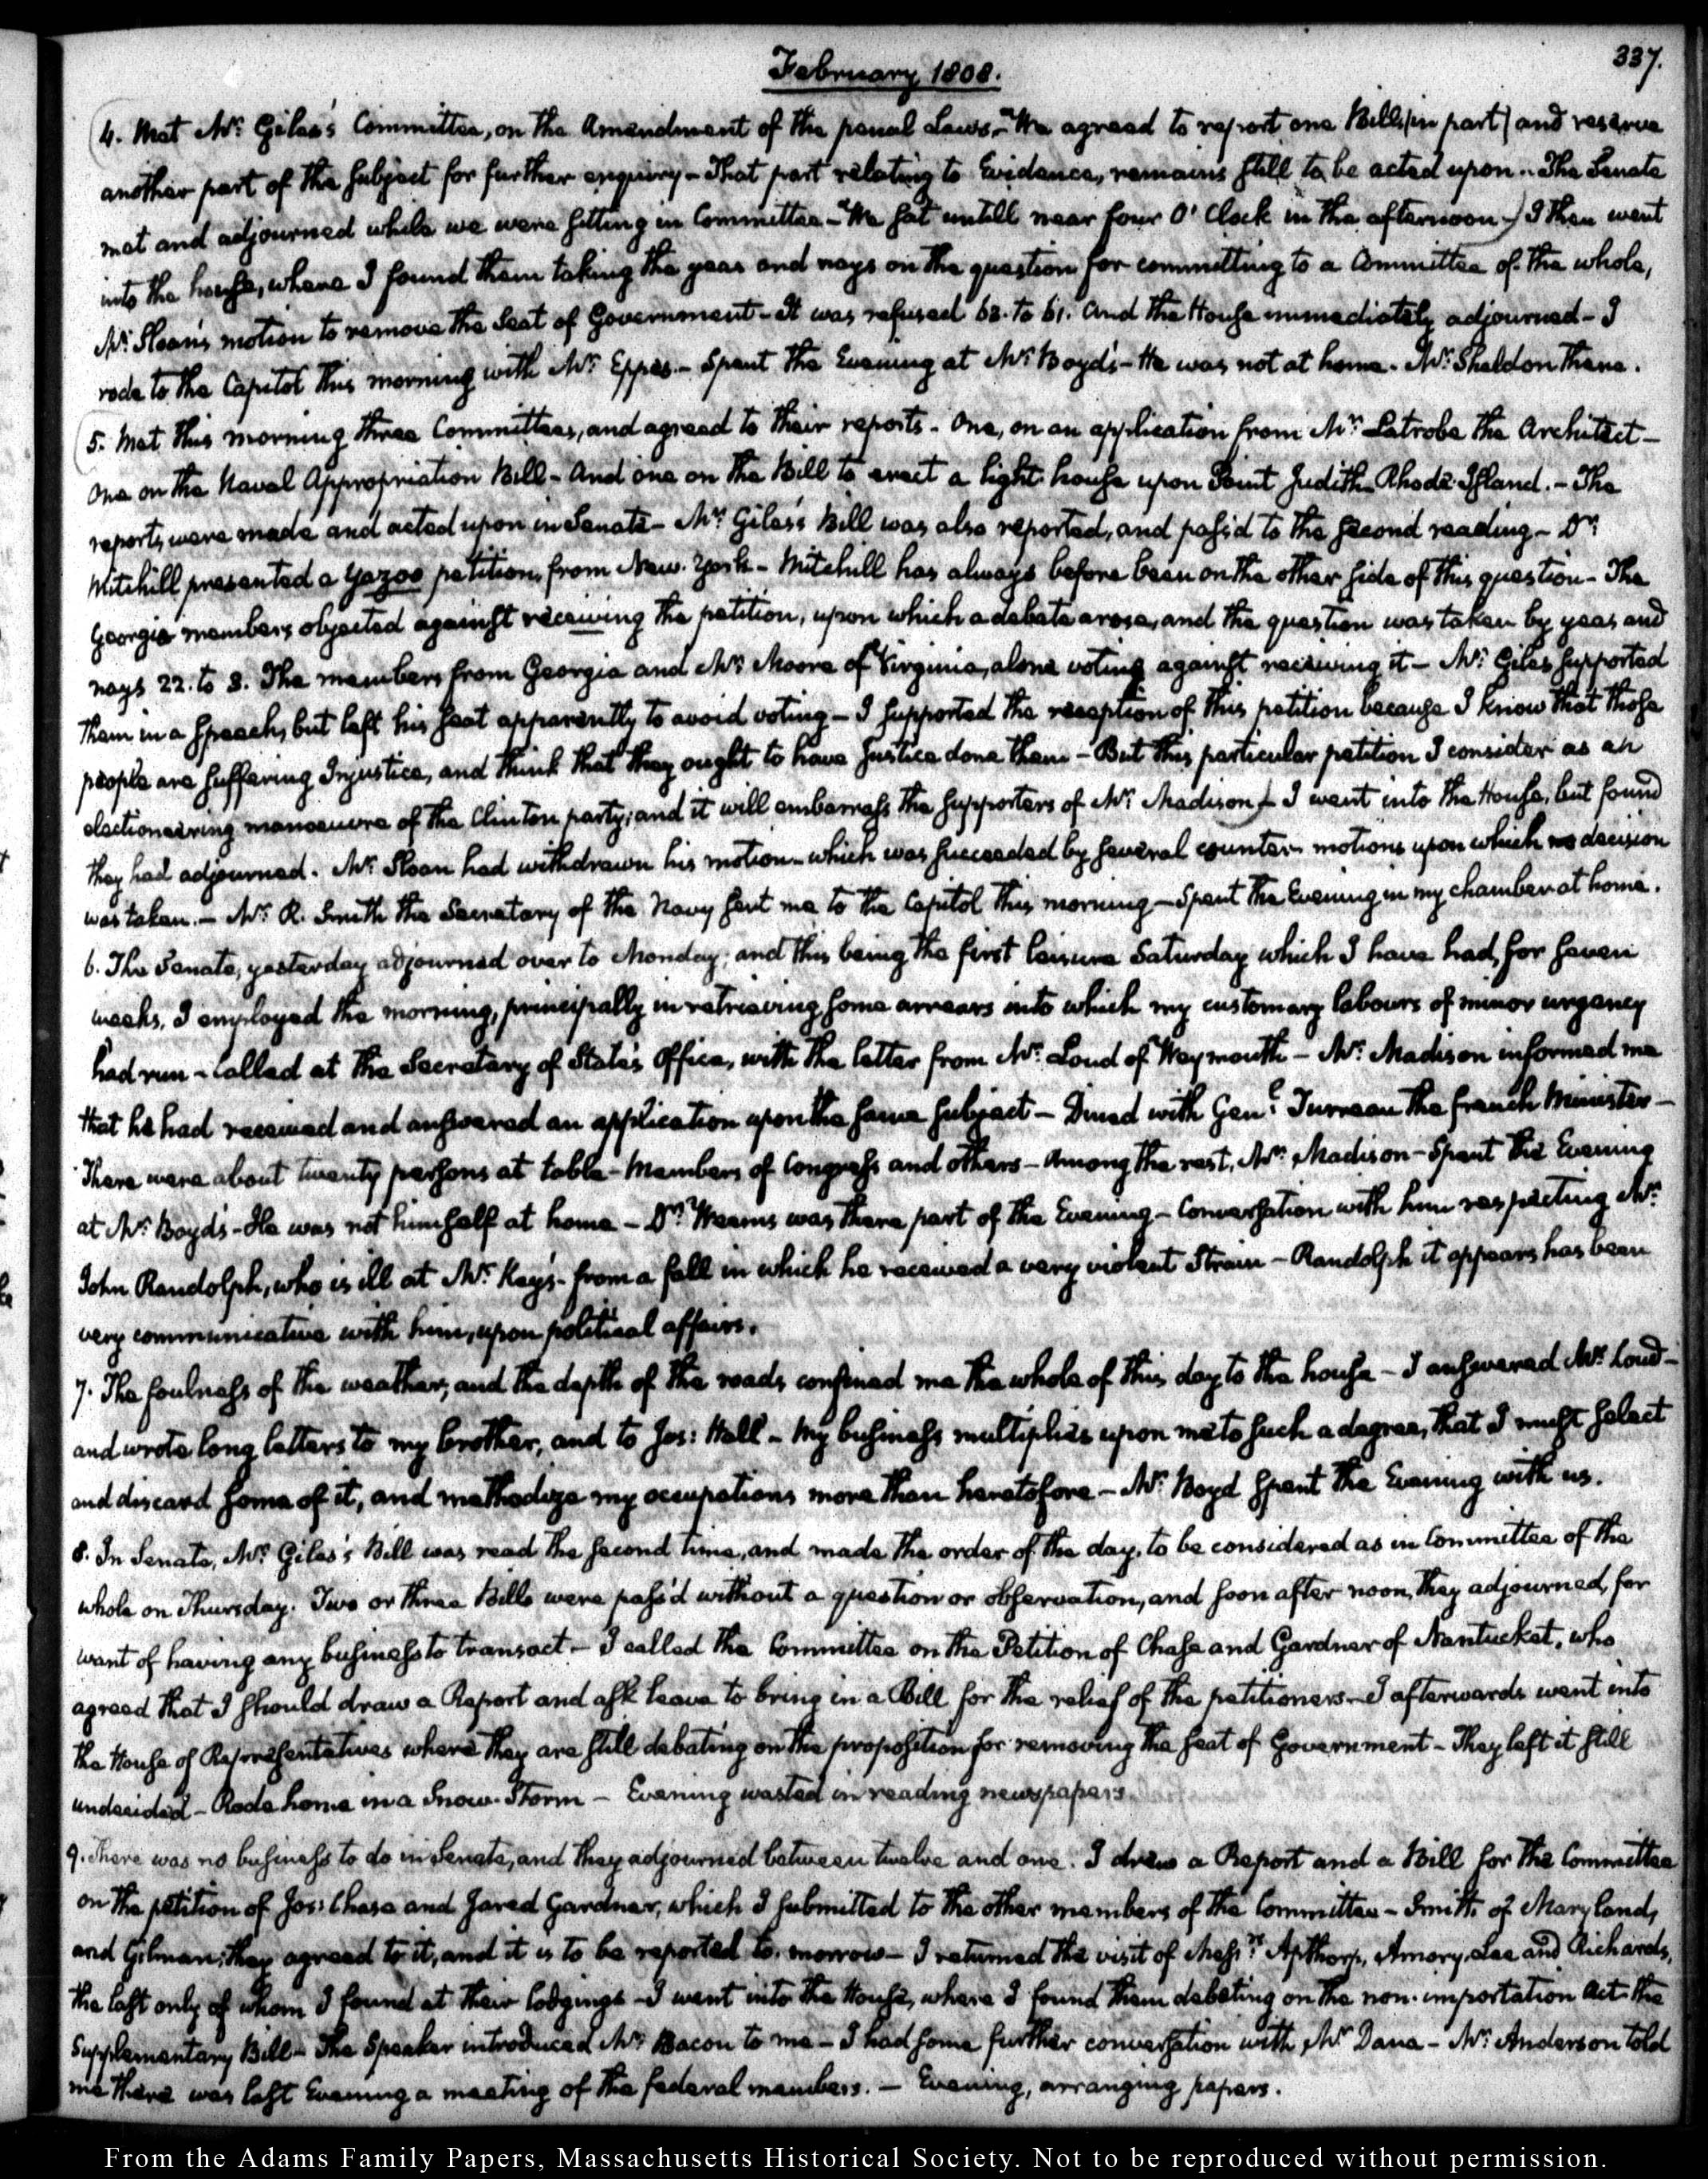 337.
February 1808.
4. Met Mr. Giles's Committee, on the Amendment of the penal Laws. We agreed to report one Bill (in part) and reserve
another part of the subject for further enquiry - That part relating to Evidence, remains still to be acted upon. The Senate
met and adjourned while we were sitting in Committee - We sat untill near four O' Clock in the afternoon -) I then went
into the house, where I found them taking the yeas and nays on the question for committing to a Committee of the whole,
Mr. Sloan's motion to remove the Seat of Government - It was refused 62. to 61. and the House immediately adjourned - I
rode to the Capitol this morning with Mr. Eppes. - Spent the Evening at Mr. Boyd's - He was not at home. Mr. Sheldon there.
5. Met this morning three Committees, and agreed to their reports. One, on an application from Mr. Latrobe the Architect -
One on the Naval Appropriation Bill - And one on the Bill to erect a light house upon Point Judith Rhode-Island. - The
reports were made and acted upon in Senate - Mr. Giles's Bill was also reported, and pass'd to the second reading - Dr.
Mitchill presented a Yazoo petition, from New-York - Mitchill has always before been on the other side of this question - The
Georgia members objected against receiving the petition, upon which a debate arose, and the question was taken by yeas and
nays 22. to 3. The members from Georgia and Mr. Moore of Virginia, alone voting against receiving it - Mr. Giles supported
them in a speech, but left his seat apparently to avoid voting - I supported the reception of this petition because I know that those
people are suffering Injustice, and think that they ought to have Justice done them - But this particular petition I consider as an
electioneering manoeuvre of the Clinton party; and it will embarrass the supporters of Mr. Madison) - I went into the House, but found
they had adjourned. Mr. Sloan had withdrawn his motion - which was succeeded by several counter-motions upon which no decision
was taken. - Mr. R. Smith the Secretary of the Navy sent me to the Capitol this morning - Spent the Evening in my chamber at home.
6. The Senate, yesterday adjourned over to Monday; and this being the first leisure Saturday which I have had, for seven
weeks, I employed the morning, principally in retrieving some arrears into which my customary labours of minor urgency
had run - Called at the Secretary of State's Office, with the letter from Mr. Loud of Weymouth - Mr. Madison informed me
that he had received and answered an application upon the same subject - Dined with Genl. Turreau the french Minister -
There were about twenty persons at table - Members of Congress and others - Among the rest, Mr. Madison - Spent the Evening
at Mr. Boyd's - He was not himself at home - Dr. Weems was there part of the Evening - Conversation with him respecting Mr.
John Randolph, who is ill at Mr. Key's - from a fall in which he received a very violent Strain - Randolph it appears has been
very communicative with him, upon political affairs.
7. The foulness of the weather, and the depth of the roads confined me the whole of this day to the house - I answered Mr. Loud -
and wrote long letters to my brother, and to Jos: Hall - My business multiplies upon me to such a degree, that I must select
and discard some of it, and methodize my occupations more than heretofore - Mr. Boyd spent the Evening with us.
8. In Senate, Mr. Giles's Bill was read the second time, and made the order of the day, to be considered as in Committee of the
whole on Thursday. Two or three Bills were pass'd without a question or observation, and soon after noon, they adjourned, for
want of having any business to transact - I called the Committee on the Petition of Chase and Gardner of Nantucket, who
agreed that I should draw a Report and ask leave to bring in a Bill for the relief of the petitioners - I afterwards went into
the House of Representatives where they are still debating on the proposition for removing the seat of Government - They left it still
undecided - Rode home in a Snow-Storm - Evening wasted in reading newspapers.
9. There was no business to do in Senate, and they adjourned between twelve and one. I drew a Report and a Bill for the Committee
on the petition of Jos: Chase and Jared Gardner, which I submitted to the other members of the Committee - Smith of Maryland,
and Gilman; they agreed to it, and it is to be reported to-morrow - I returned the visit of Messrs. Apthorp, Amory, Lee and Richards,
the last only of whom I found at their lodgings - I went into the House, where I found them debating on the non-importation Act - the
Supplementary Bill - The Speaker introduced Mr. Bacon to me - I had some further conversation with Mr. Dana - Mr. Anderson told
me there was last Evening a meeting of the federal members. - Evening, arranging papers.
From the Adams Family Papers, Massachusetts Historical Society. Not to be reproduced without permission.